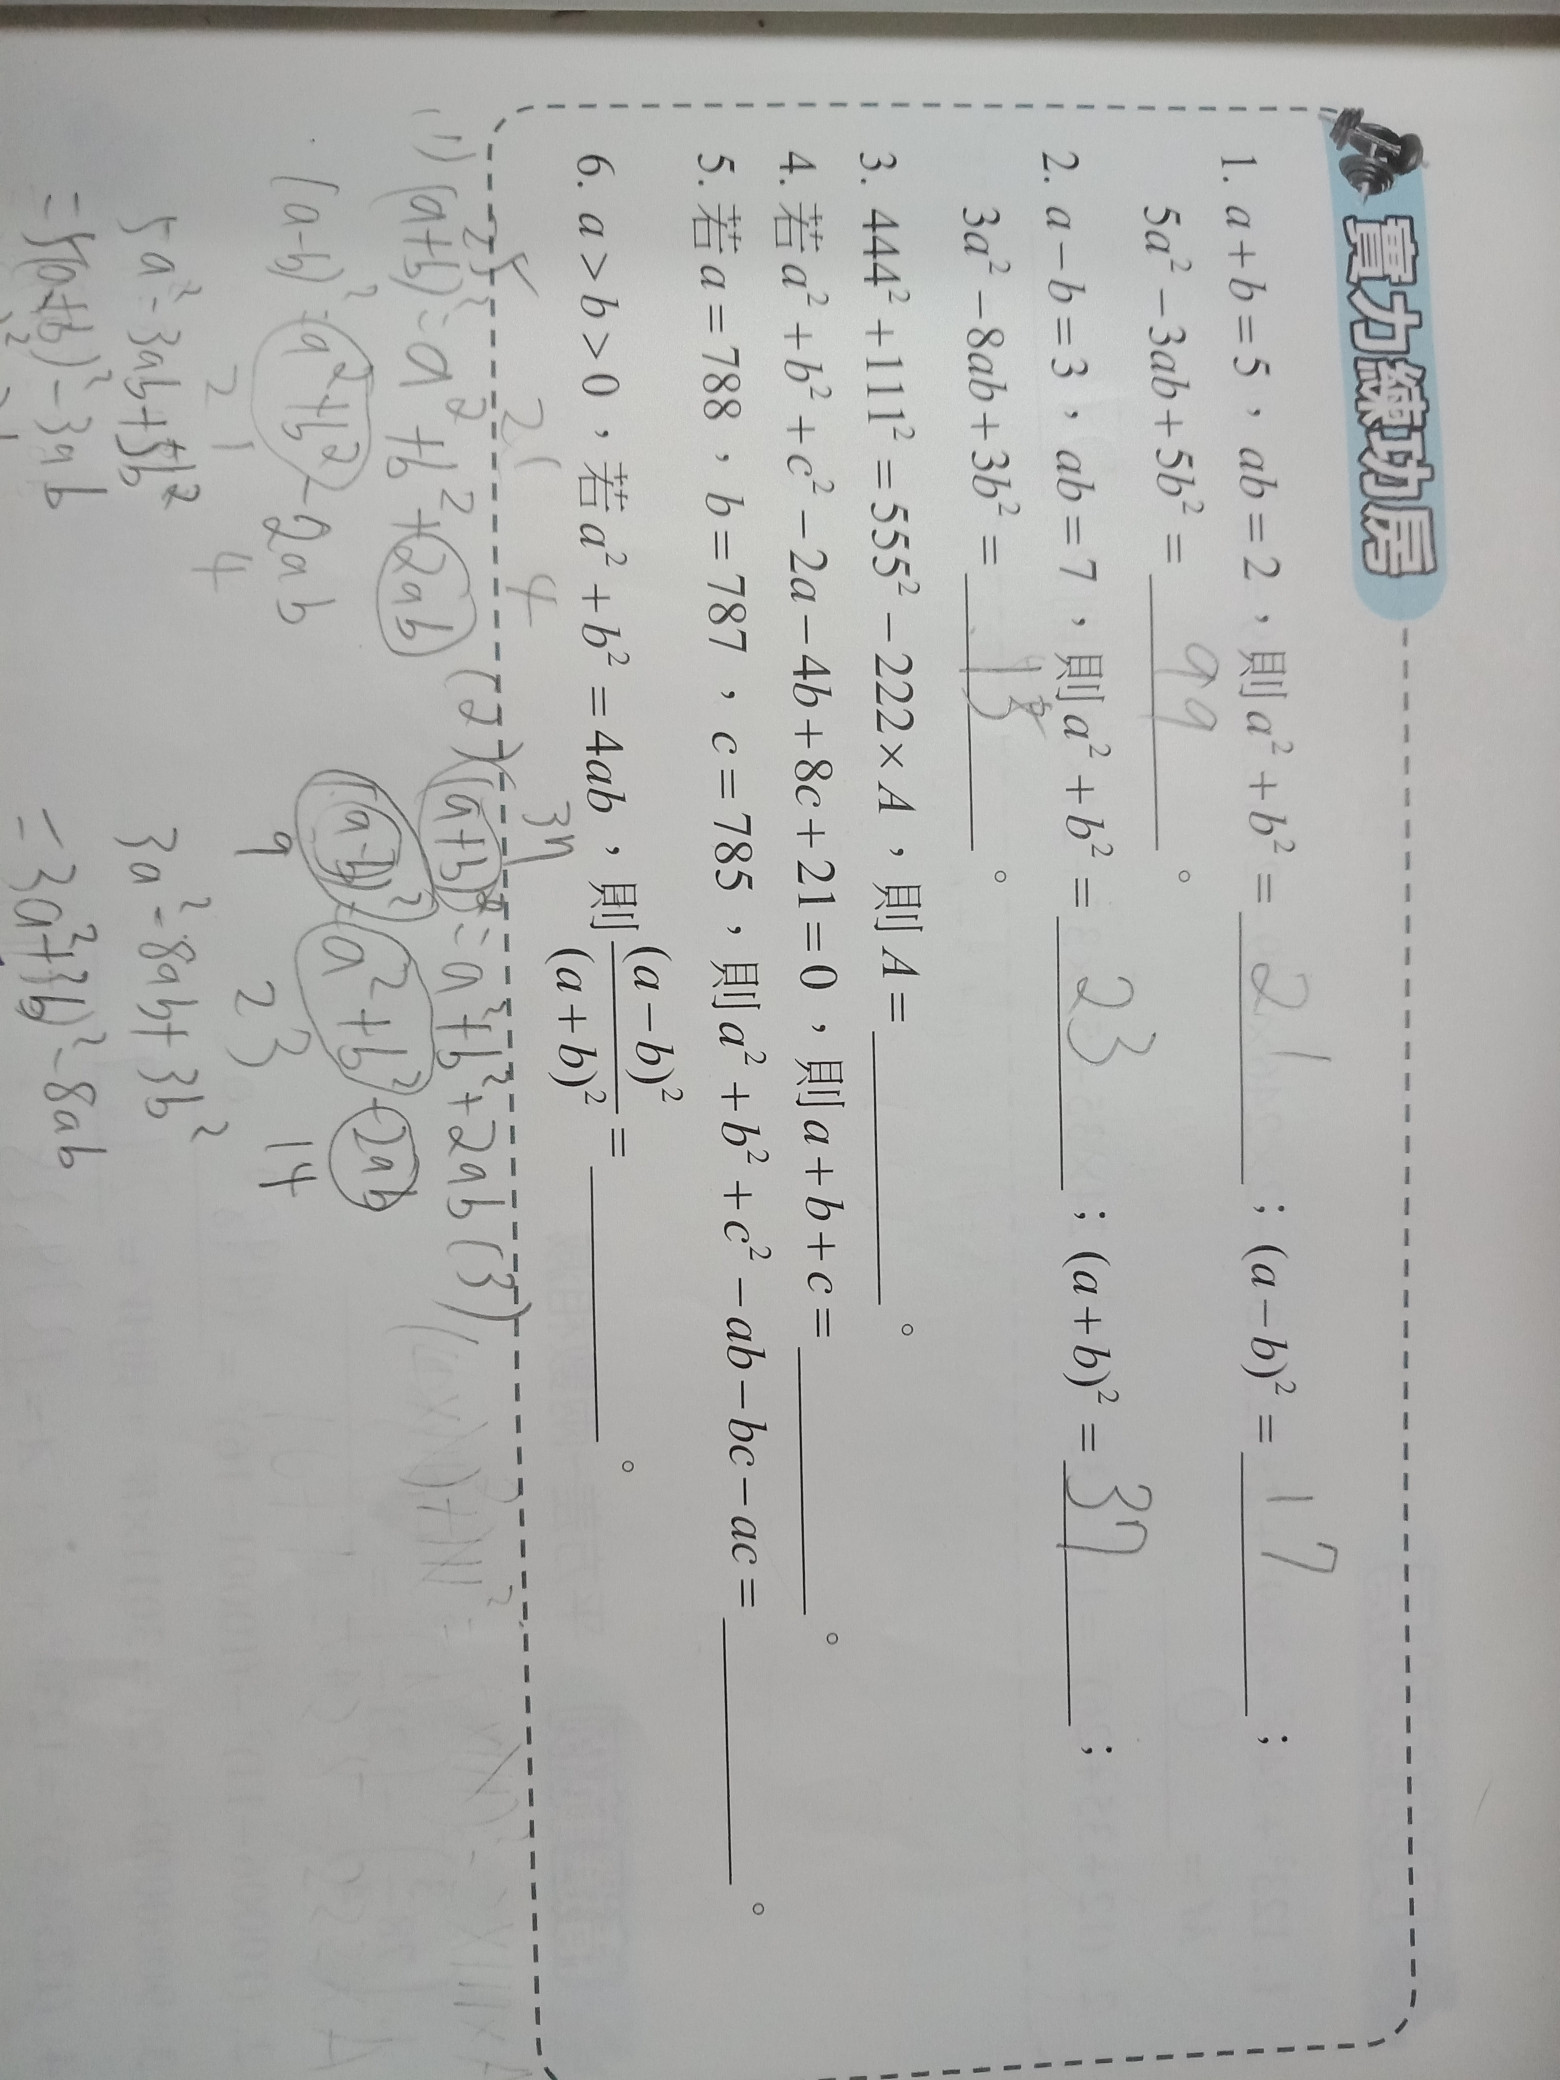 實力練功房
1. a+b=5,ab=2,則a²+b²= 21 ;(a-b)²= 17 ;
5a²-3ab+5b²= 99 。
2. a-b=3,ab=7,則a²+b²= 23 ;(a+b)²= 37 ;
3a²-8ab+3b²= 13 。
3. 444²+111²=555²-222×A,則A=______。
4. 若a²+b²+c²-2a-4b+8c+21=0,則a+b+c=______。
5. 若a=788,b=787,c=785,則a²+b²+c²-ab-bc-ac=______。
6. a>b>0,若a²+b²=4ab,則(a-b)²/(a+b)²=______。
25 21 4
(1) (a+b)²=a²+b²+2ab
(a-b)²=a²+b²-2ab
21 4
5a²-3ab+5b²
=5(a+b)²-3ab
37
(2) (a+b)²=a²+b²+2ab
(a-b)²=a²+b²-2ab
9 23 14
3a²-8ab+3b²
=3a²+3b²-8ab
(3)